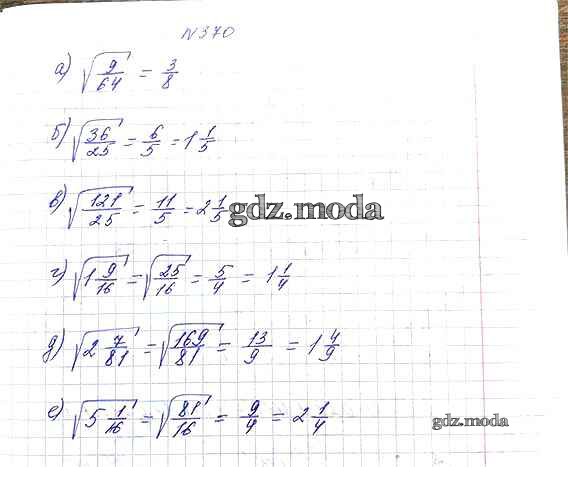 N 370
а) √(9/64) = 3/8
б) √(36/25) = 6/5 = 1 1/5
в) √(121/25) = 11/5 = 2 1/5
gdz.moda
г) √(1 9/16) = √(25/16) = 5/4 = 1 1/4
д) √(2 7/81) = √(169/81) = 13/9 = 1 4/9
е) √(5 1/16) = √(81/16) = 9/4 = 2 1/4
gdz.moda